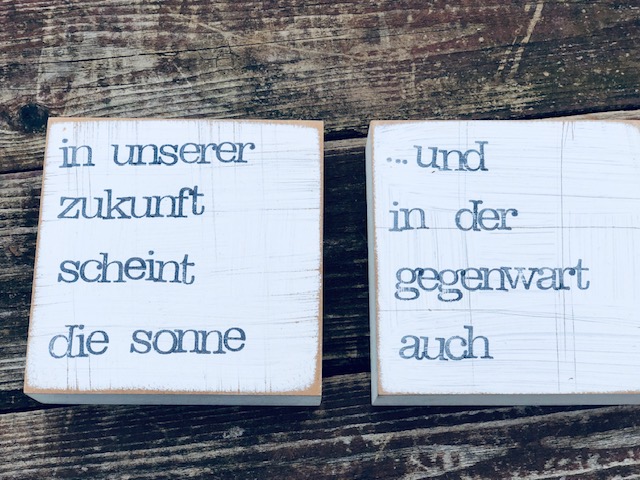 in unserer
zukunft
scheint
die sonne
...und
in der
gegenwart
auch